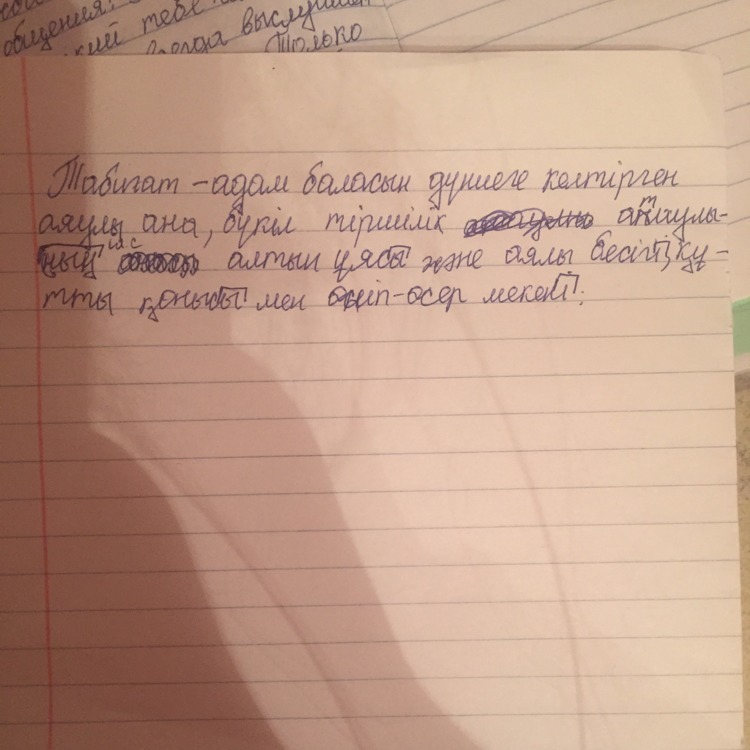 общения:
кий тебе
всегда выслушает
Только
Табиғат – адам баласын дүниеге келтірген
аяулы ана, бүкіл тіршілік атаулы-
ның алтын ұясы және аялы бесігі, құ-
тты қонысы мен өніп-өсер мекені.